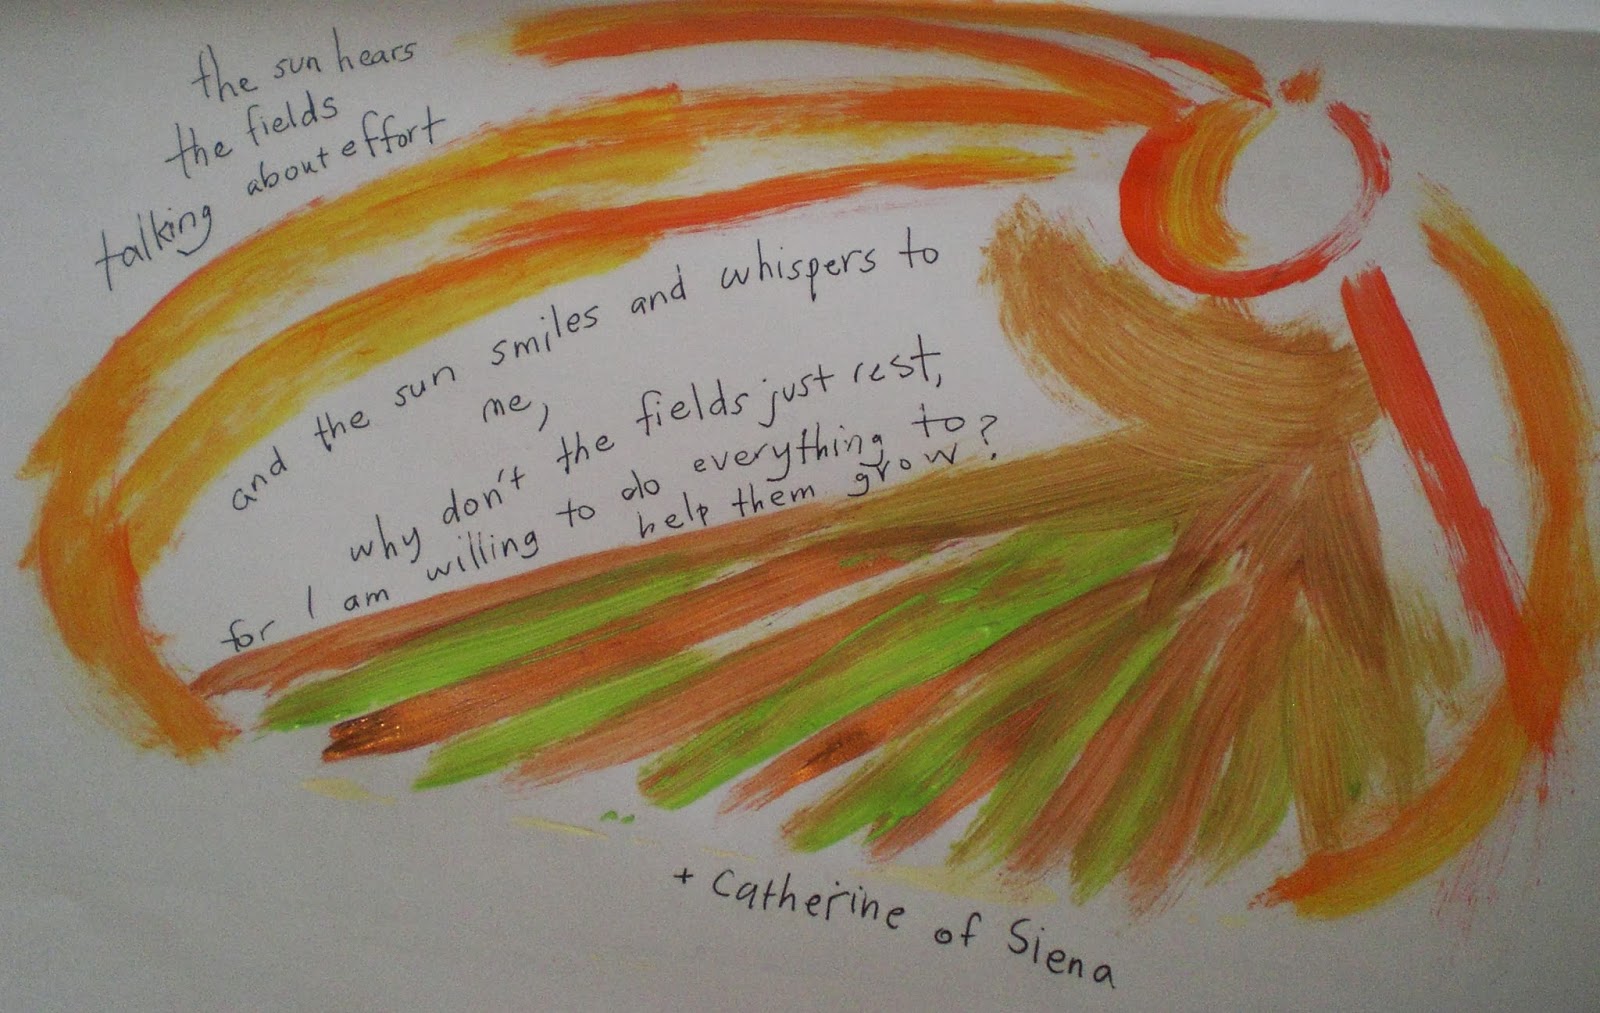 the sun hears
the fields
talking about effort
and the sun smiles and whispers to
me,
why don't the fields just rest,
for I am willing to do everything to
help them grow?
+ Catherine of Siena